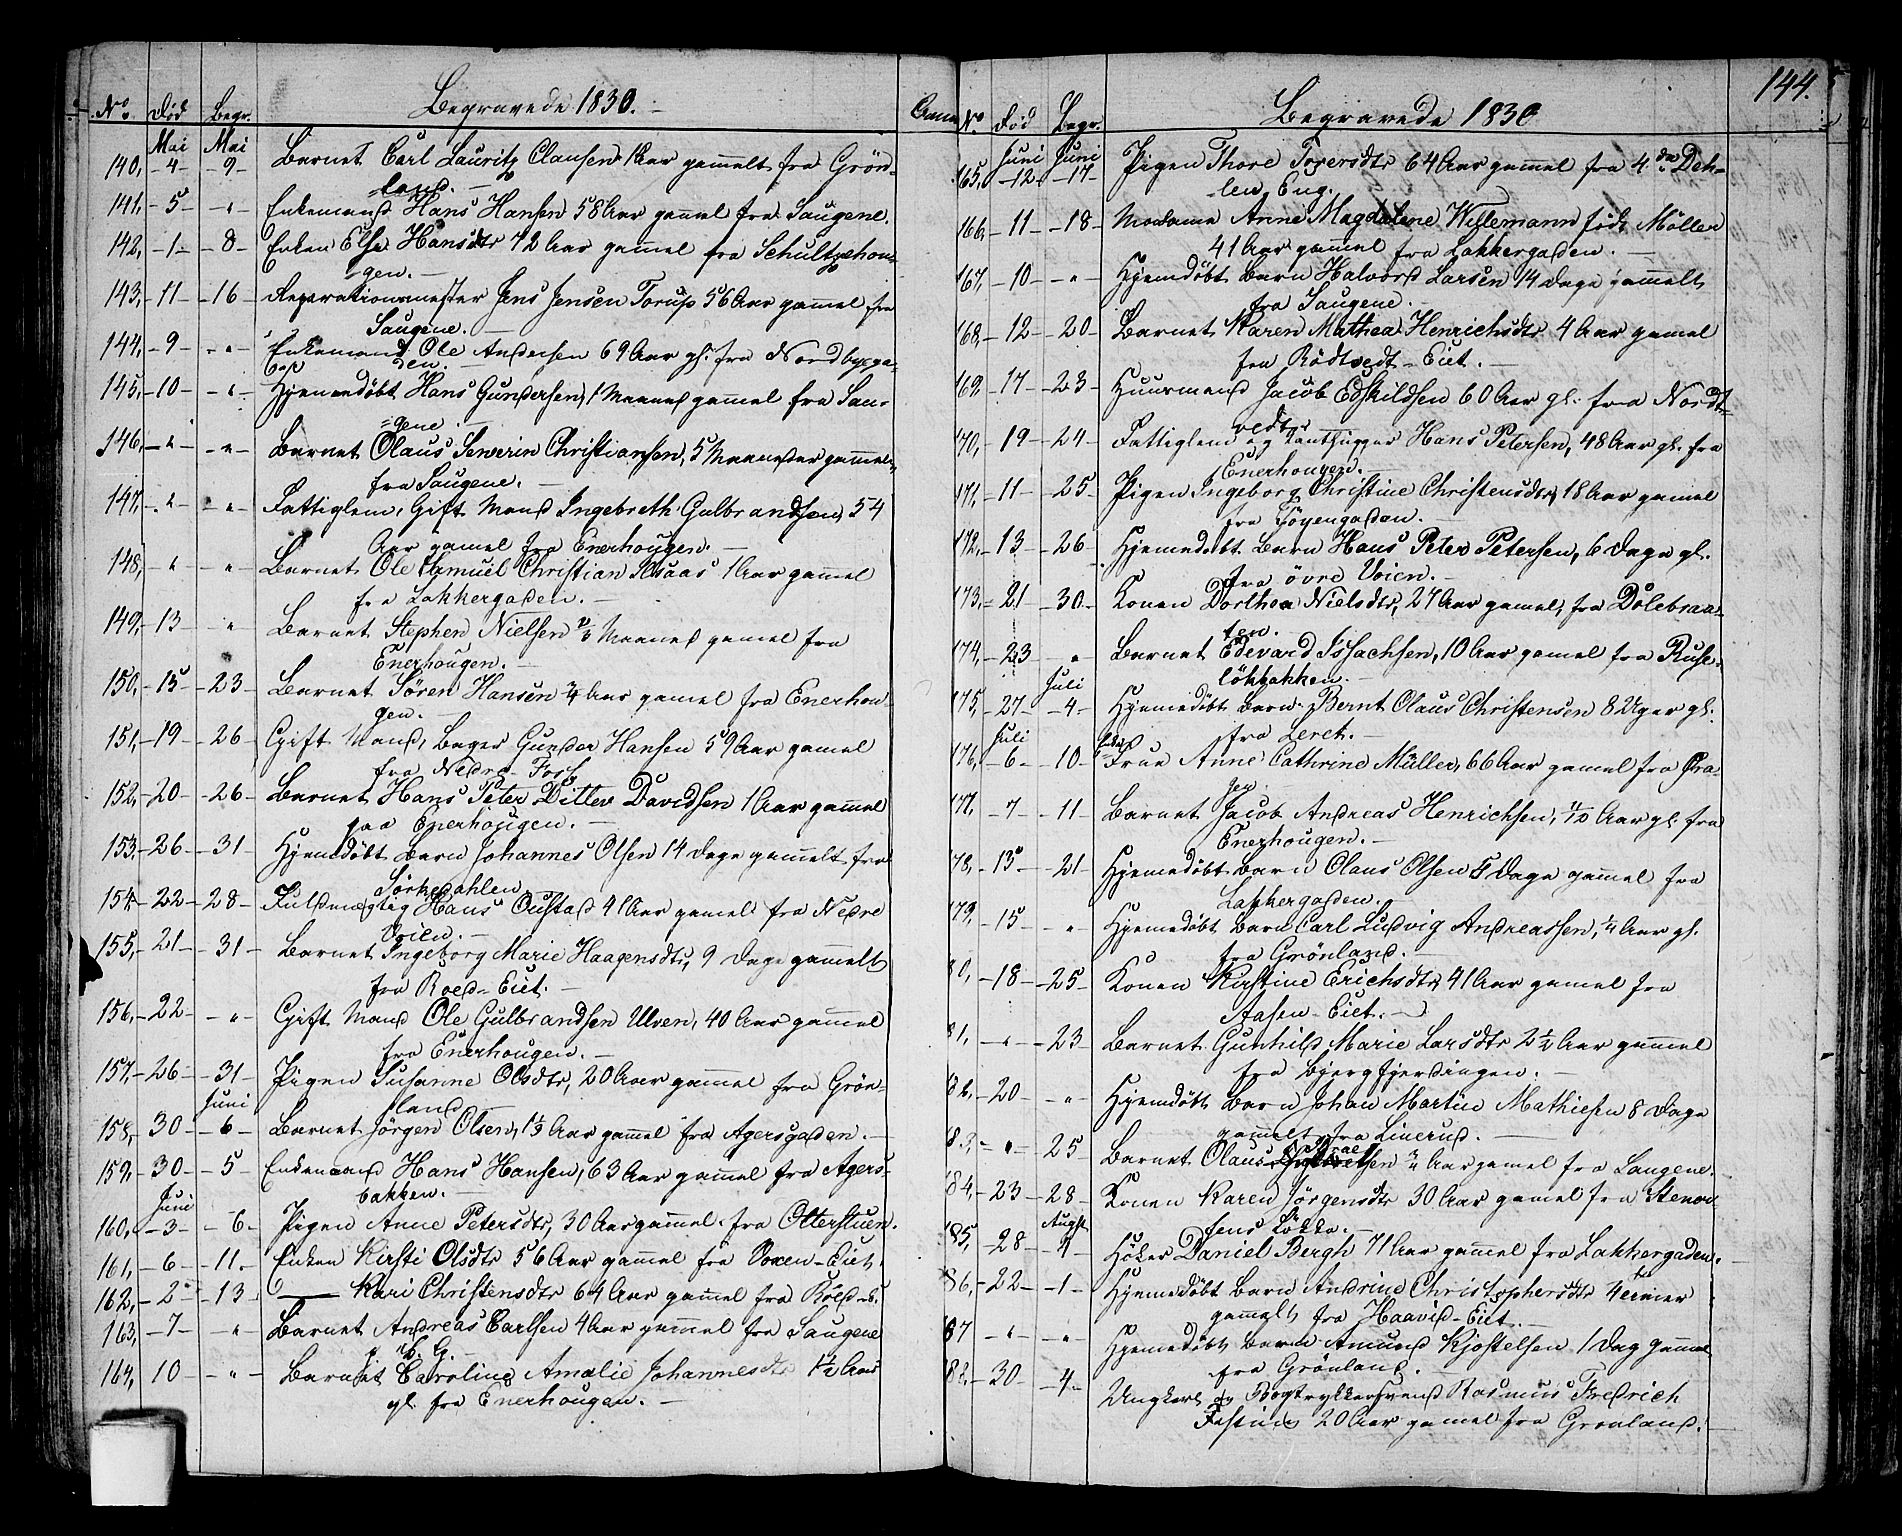 No. Død Begr. Begravede 1830. Anm
Mai Mai
140, -4- -9- Barnet Carl Lauritz Clausen 1 Aar gam̄elt fra Grøn-
land. -
141, -5- -"- Enkemand Hans Hansen 58 Aar gam̄el fra Saugene.
142, -1- -8- Enken Else Hansdtr 72 Aar gam̄el fra Schultzehou-
gen. -
143, -11- -16- Reparationsmester Jens Jensen Torup 56 Aar gam̄el fra
Saugene. -
144, -9- -"- Enkemand Ole Andersen 69 Aar gl. fra Nordbyga-
den. -
145, -10- -"- Hjemmedøbt Hans Gundersen, 1 Maaned gam̄el fra Sau-
=gene. -
146, -"- -"- Barnet Olaus Severin Christiansen, 5 Maaneder gam̄el,
fra Saugene. -
147, -"- -"- Fattiglem, Gift Mand Ingebreth Gulbrandsen, 54
Aar gam̄el fra Enerhougen. -
148, -"- -"- Barnet Ole Samuel Christian Isaas 1 Aar gam̄el
fra Lakkergaden. -
149, -13 " Barnet Stephen Nielsen ½ Maaned gam̄el fra
Enerhougen. -
150, -15 -23- Barnet Søren Hansen ¾ Aar gam̄el fra Enerhou-
gen. -
151, -19 -26 Gift Mand, Bager Gunder Hansen 59 Aar gam̄el
fra Nedre-Foss
152, -20 -26- Barnet Hans Peter Ditlev Davidsen 1 Aar gam̄el
paa Enerhougen. -
153, -26 -31- Hjemdøbt Barn Johannes Olsen 14 Dage gam̄elt fra
Sørkedahlen.
154, -22 -28- Fuldmegtig Hans Oustad 41 Aar gam̄el fra Nedre
Voien. -
155, -21 -31- Barnet Ingeborg Marie Haagensdtr, 9 Dage gam̄elt
fra Roed-Eiet. -
156, -22- -"- Gift Mand Ole Gulbrandsen Ulven, 40 Aar gam̄el
fra Enerhougen. -
157, -26- -31- Pigen Susanne Olsdtr, 20 Aar gam̄el fra Grøn-
Juni land
158, 30- -6- Barnet Jörgen Olsen, 1⅓ Aar gam̄el fra Agersgaden. -
159, -30- -5- Enkemand Hans Hansen, 63 Aar gam̄el fra Agers-
Juni bakken. -
160, -3- -6- Pigen Anne Petersdtr, 30 Aar gam̄el. fra Otterstuen.
161, -6- -11- Enken Kirsti Olsdtr 56 Aar gam̄el fra Voxen-Eiet.
162, -2- -13 —— Kari Christensdtr 64 Aar gam̄el fra Roed-E.
163, -7- -"- Barnet Andreas Carlsen 4 Aar gam̄el fra Saugene
164, 10 -"- Barnet Caroline Amalie Johannesdtr 1½ Aar
gl. fra Enerhougen. -
144.
No. Død Begr. Begravede 1830
Juni Juni
165, -12- -17- Pigen Thore Toresdtr 64 Aar gam̄el fra 4.de Deh-
len Eng.
166, -11- -18- Madame Anne Magdalene Willemann fød Møller
41 Aar gam̄el fra Lakkergaden. -
167, -10- -"- Hjemdøbt Barn Halvord Larsen 14 Dage gam̄elt
fra Saugene. -
168, -12- -20- Barnet Karen Mathea Henrichsdtr 4 Aar gam̄el
fra Rödtvedt-Eiet. -
169, -17 -23- Huusmand Jacob Edskildsen 60 Aar gl. fra Nordt-
vedt
170, -19 -24- Fattiglem og Tanthugger Hans Petersen, 48 Aar gl. fra
Enerhougen. -
171, -11- -25- Pigen Ingeborg Christine Christensdtr, 18 Aar gam̄el
fra Töyengaden. -
172, -13 -26 Hjemedøbt Barn Hans Peter Petersen, 6 Dage gl.
fra övre Voien. -
173, -21 -30- Konen Dorthea Nielsdtr, 27 Aar gam̄el, fra Dölebraa-
ten. -
174, -23 " Barnet Edevard Issachsen, 10 Aar gam̄el fra Ruse-
Juli lökbakken. -
175, -27- -4- Hjemedøbt Barn Bernt Olaus Christensen 8 Uger gl.
Juli fra Lerch. -
176, -6- 10- Frue Anne Cathrine Müller, 66 Aar gam̄el fra Pra-
177, -7 -11 Barnet Jacob Andreas Henrichsen, ½ Aar gl. fra
Enerhougen. -
178, -13- -21 Hjemedøbt Barn Olaus Olsen 5 Dage gam̄el fra
Lakkergaden. -
179, -15 " Hjemedøbt Barn Carl Ludvig Andreassen, ¼ Aar gl.
fra Grönland. -
80, -18 -25- Konen Kirstine Erichsdtr, 41 Aar gam̄el fra
Aasen-Eiet. -
81, -"- -23 Barnet Gunhild Marie Larsdtr 2½ Aar gam̄el
fra Bjergfjerdingen. -
82, -20- " Hjemdøbt Barn Johan Martin Mathiesen 8 Dage
gam̄elt fra Linerud. -
83, -"- 25 Barnet Olaus ¾ Aar gam̄el fra Saugene.
84, -23 28- Konen Karen Jörgensdtr 30 Aar gam̄el fra Steners-
August sens Løkke. -
185, -28 -4 Høker Daniel Bergh 71 Aar gam̄el fra Lakkergaden.
86, -22- -1- Hjemedøbt Barn Andrine Christophersdtr 4 Timer
gam̄elt fra Haavid-Eiet. -
87 -"- -"- Hjemedøbt Barn Amund Kjostelsen 1 Dag gam̄el
fra Grönland. -
88, -30- -4- Ungkarl og Bogtrykkersvend Rasmus Fredrich
20 Aar gam̄el fra Grönland.